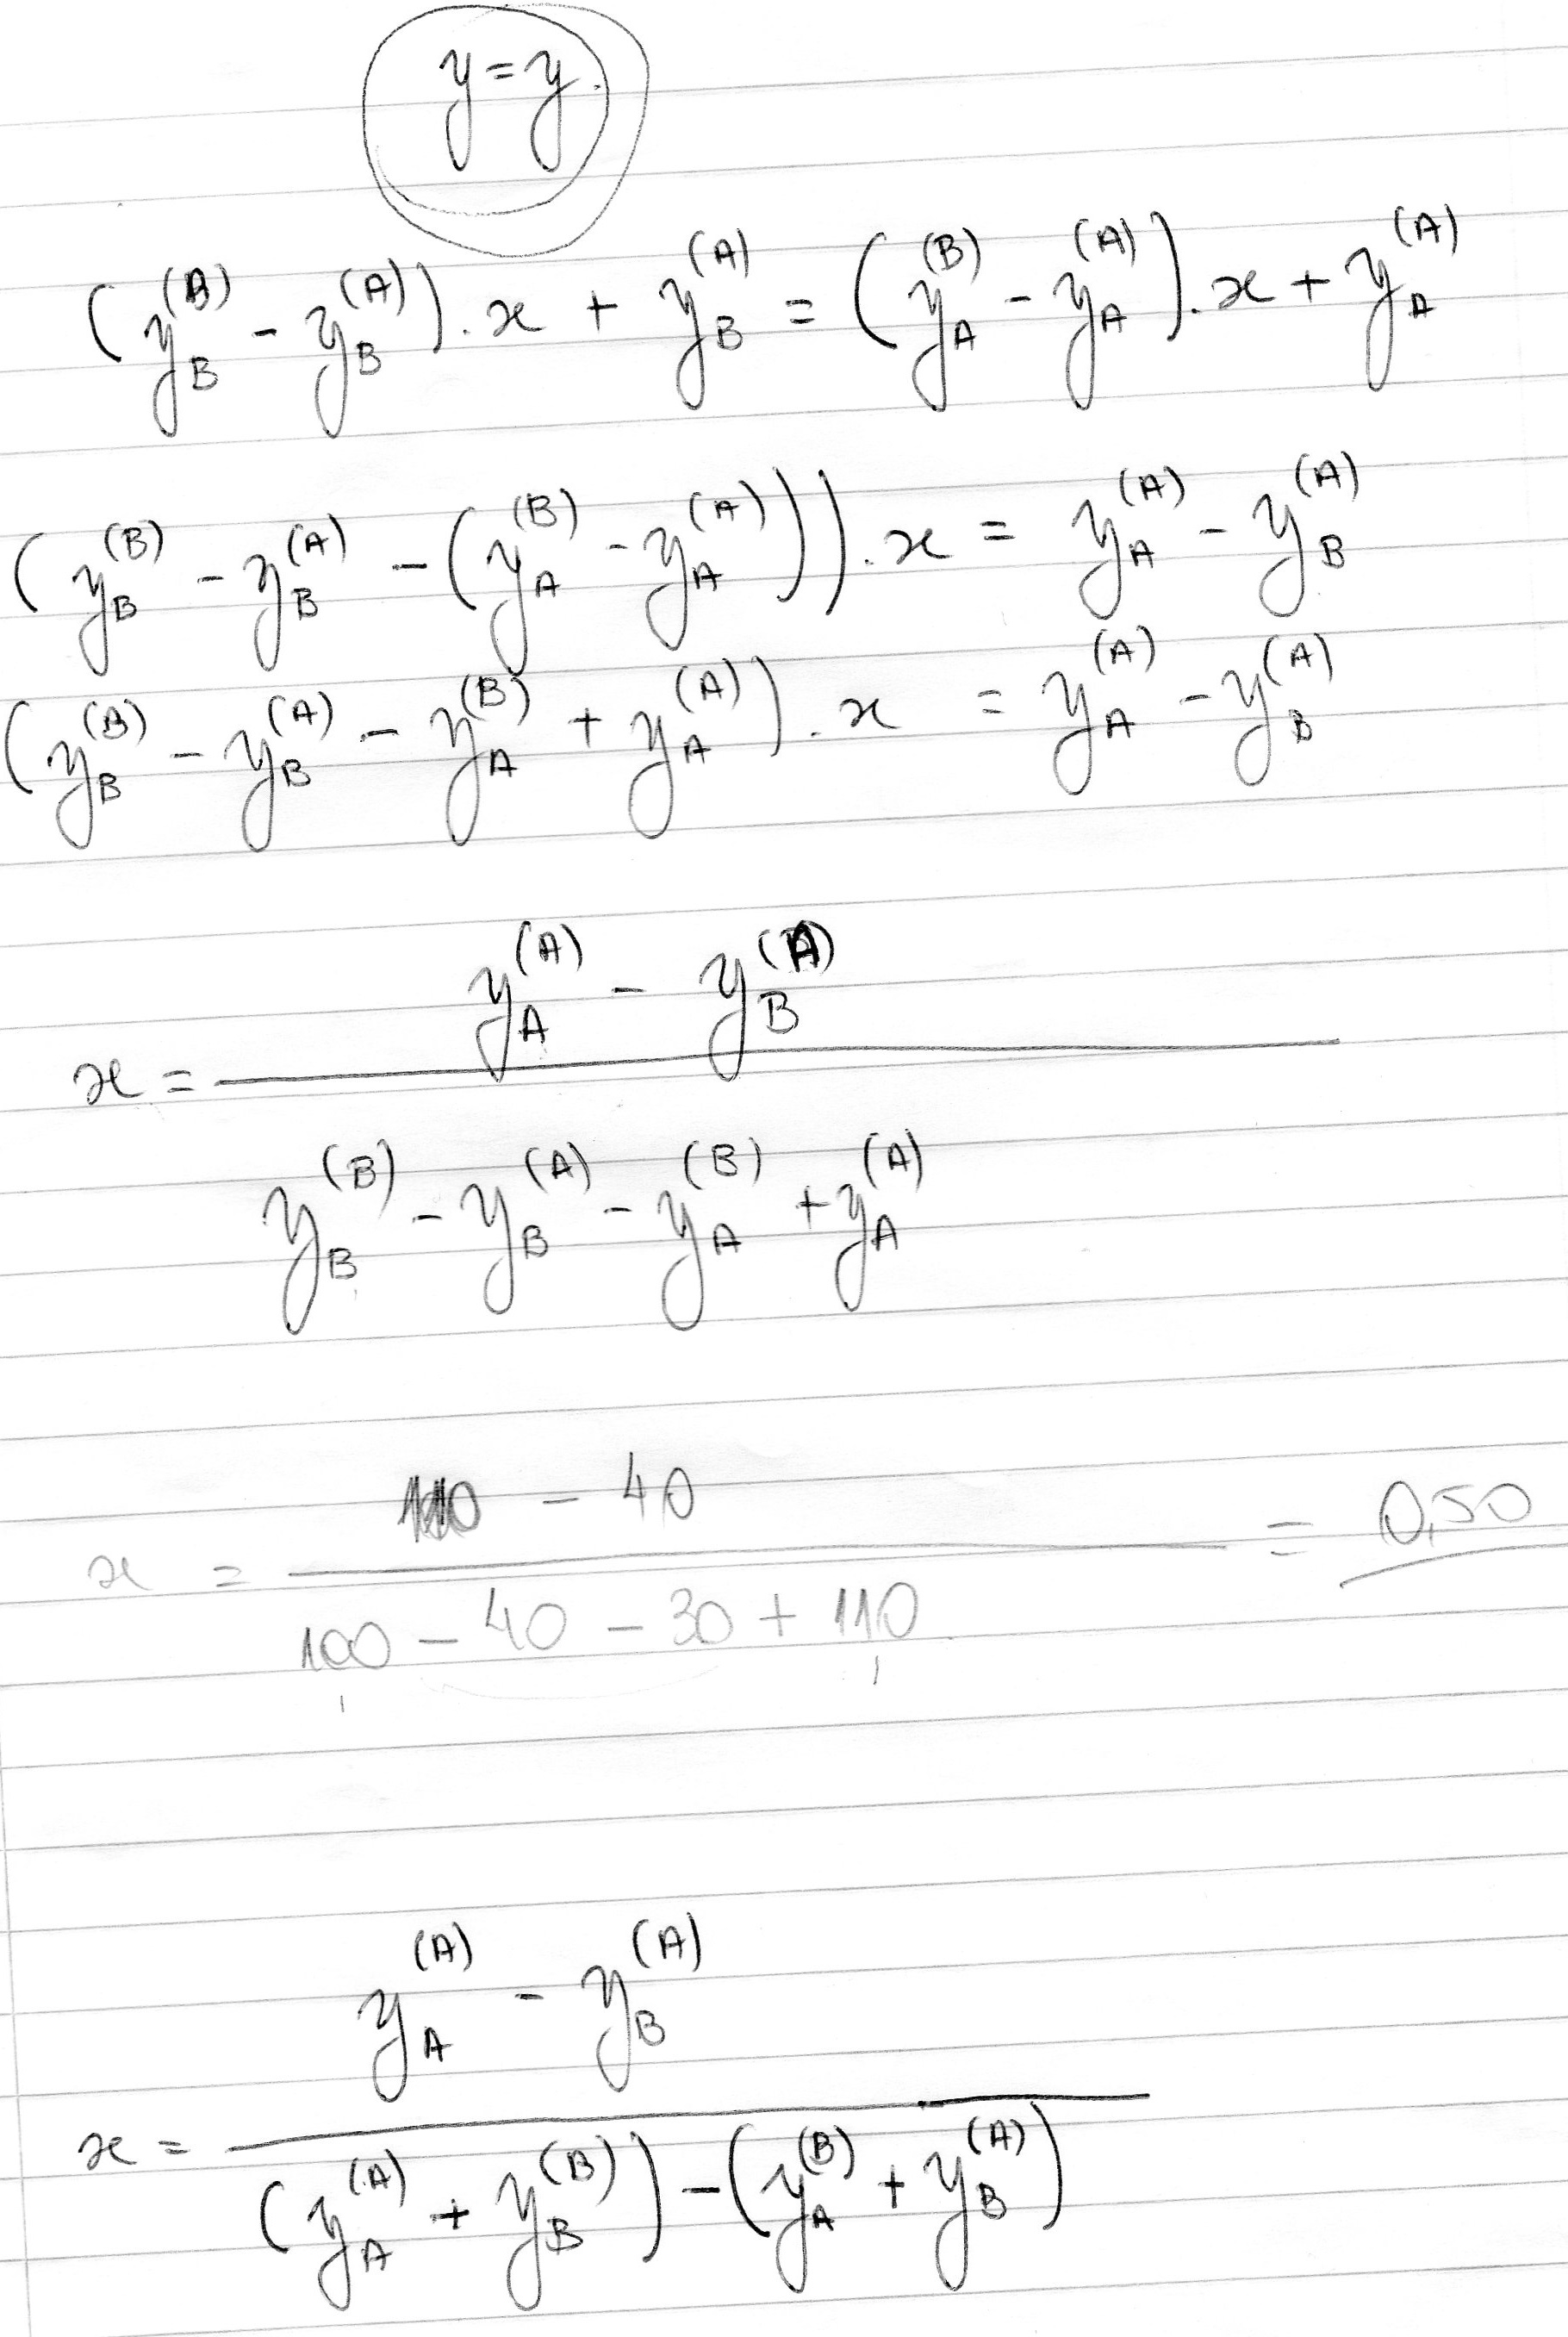 y = y
(y_B^(B) - y_B^(A)) . x + y_B^(A) = (y_A^(B) - y_A^(A)) . x + y_A^(A)
(y_B^(B) - y_B^(A) - (y_A^(B) - y_A^(A))) . x = y_A^(A) - y_B^(A)
(y_B^(B) - y_B^(A) - y_A^(B) + y_A^(A)) . x = y_A^(A) - y_B^(A)
y_A^(A) - y_B^(A)
x =
y_B^(B) - y_B^(A) - y_A^(B) + y_A^(A)
110 - 40
x = = 0,50
100 - 40 - 30 + 110
y_A^(A) - y_B^(A)
x =
(y_A^(A) + y_B^(B)) - (y_A^(B) + y_B^(A))